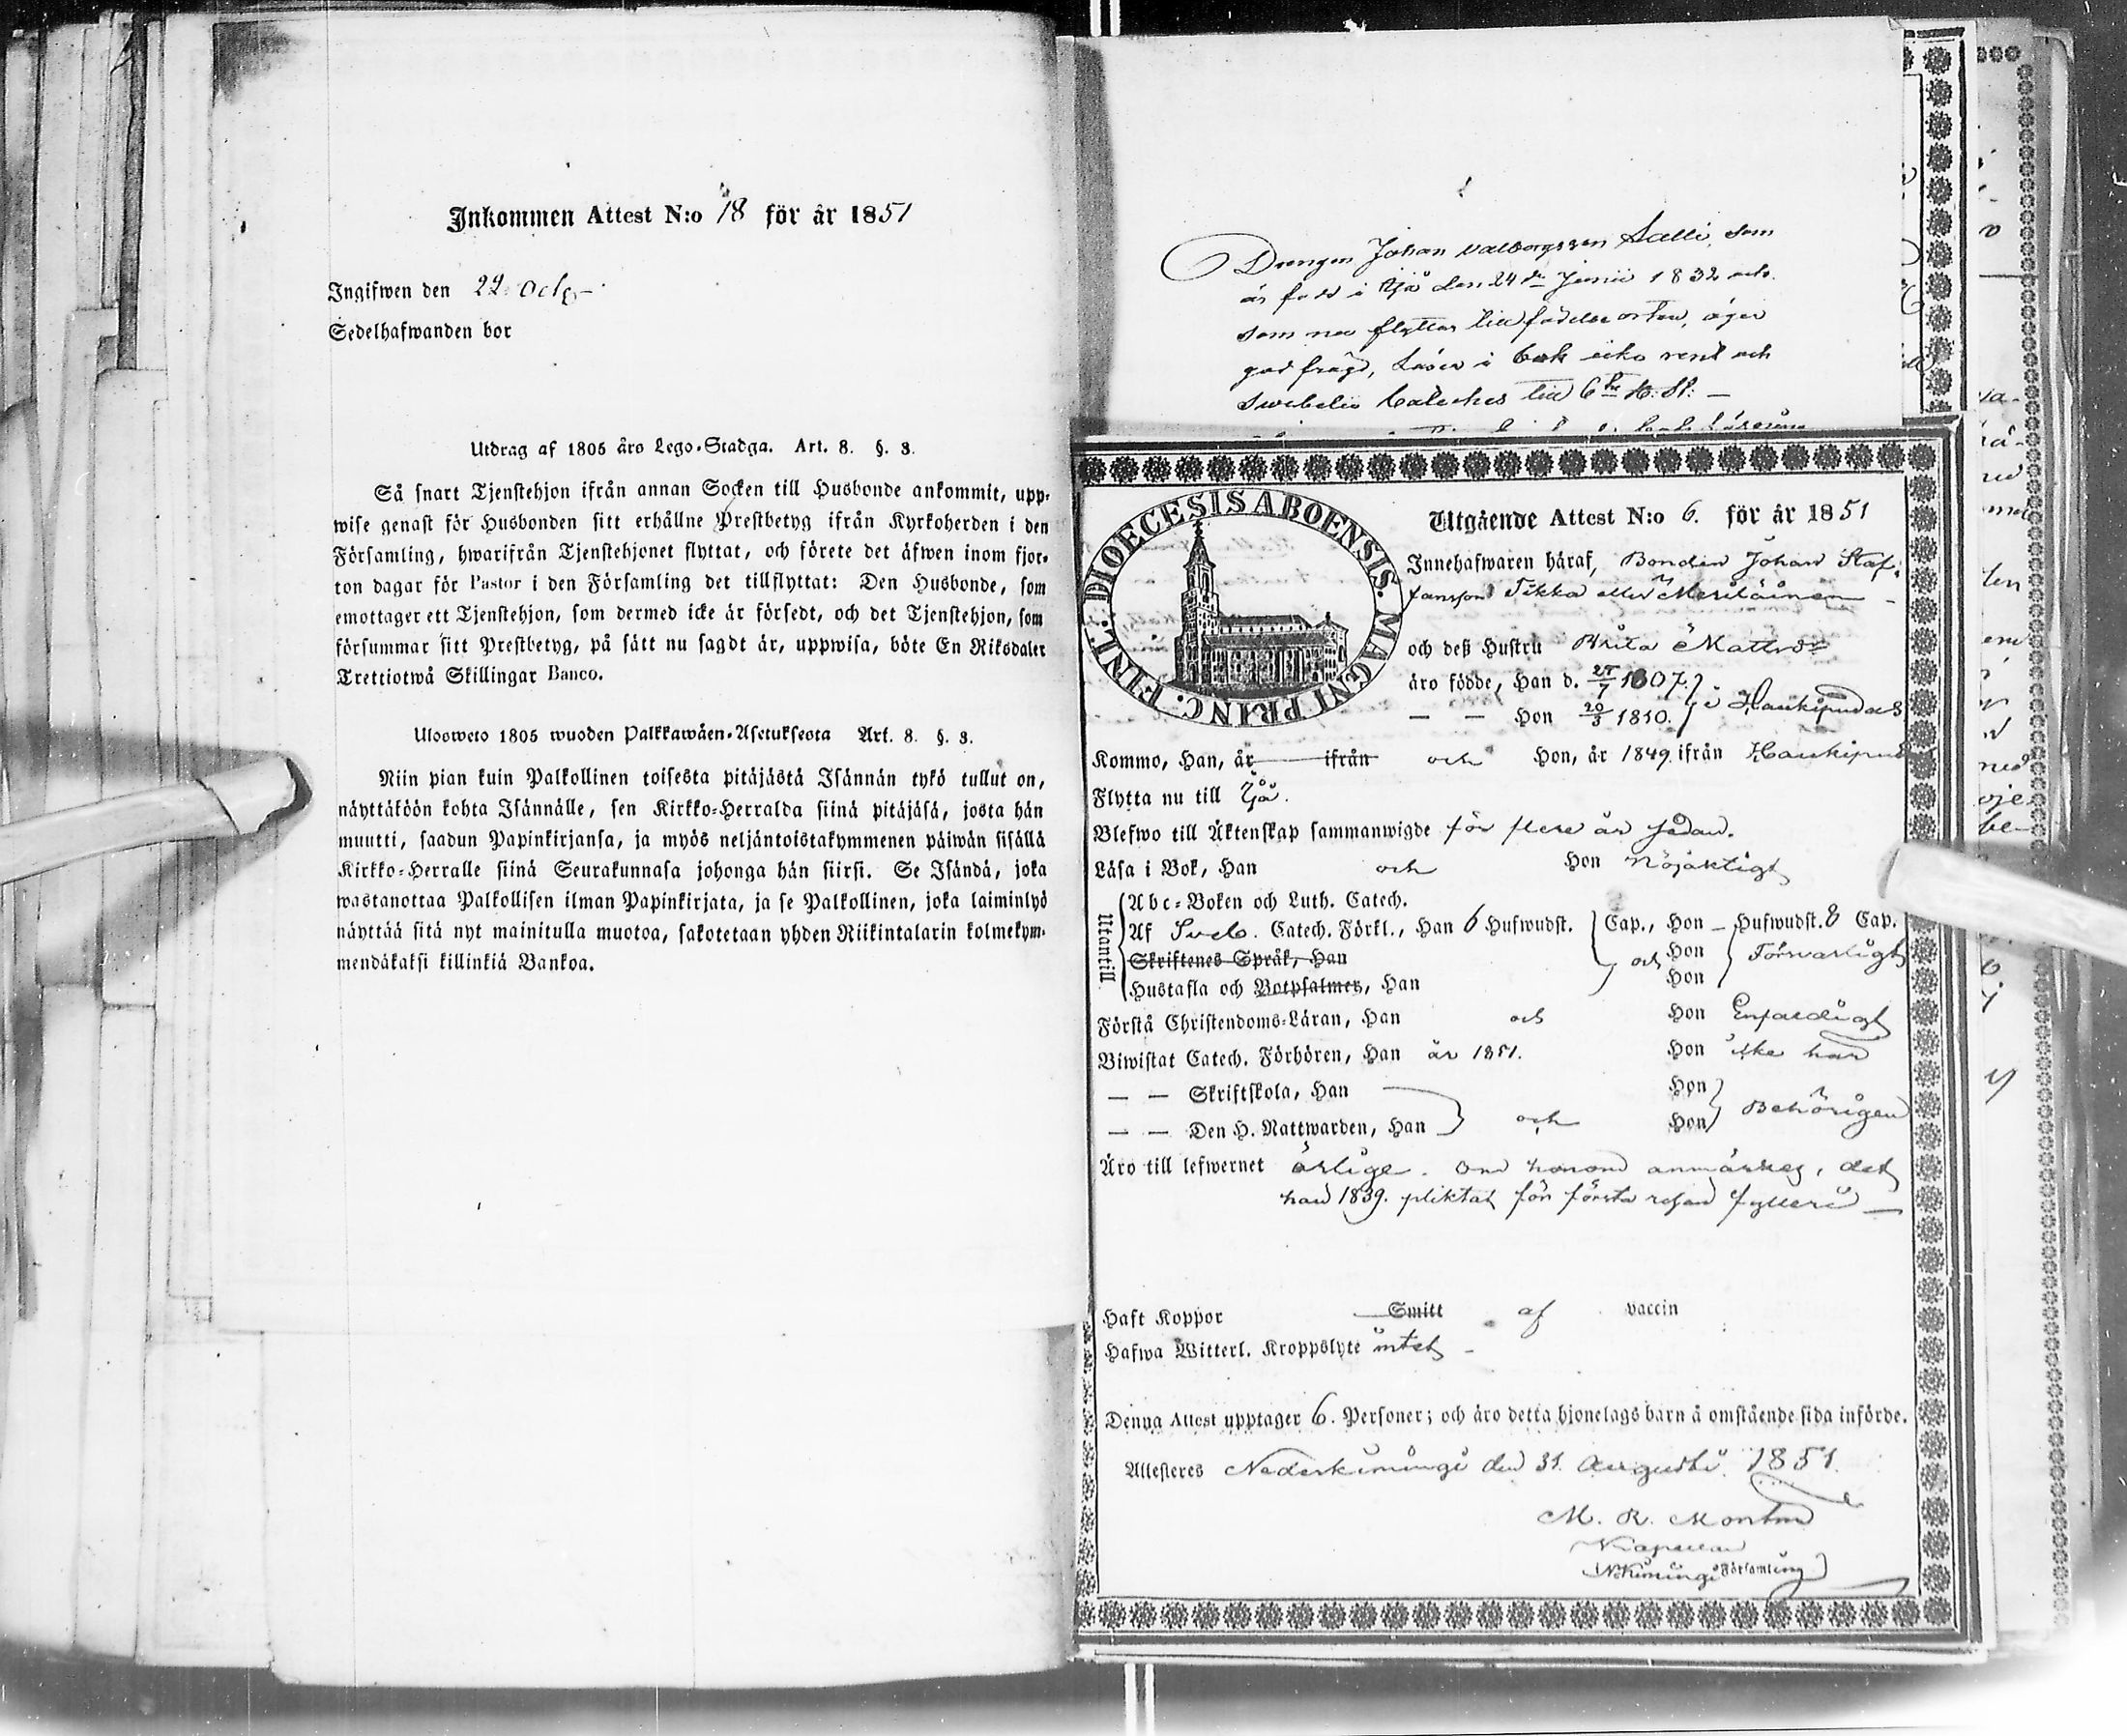 Inkommen Attest N:o 18 för år 1851
Ingifwen den 22 Octb
Sedelhafwanden bor
Utdrag af 1805 års Lego-Stadga. Art. 8. §. 3.
Så snart Tjenstehjon ifrån annan Socken till Husbonde ankommit, upp-
wise genast för Husbonden sitt erhållne Prestbetyg ifrån Kyrkoherden i den
Församling, hwarifrån Tjenstehjonet flyttat, och förete det äfwen inom fjor-
ton dagar för Pastor i den Församling det tillflyttat: Den Husbonde, som
emottager ett Tjenstehjon, som dermed icke är försedt, och det Tjenstehjon, som
försummar sitt Prestbetyg, på sätt nu sagdt är, uppwisa, böte En Riksdaler
Trettiotwå Skillingar Banco.
Ulosweto 1805 wuoden Palkkawäen-Asetuksesta Art. 8. §. 3.
Niin pian kuin Palkollinen toisesta pitäjästä Isännän tykö tullut on,
näyttäköön kohta Isännälle, sen Kirkko-Herralda siinä pitäjäsä, josta hän
muutti, saadun Papinkirjansa, ja myös neljäntoistakymmenen päiwän sisällä
Kirkko-Herralle siinä Seurakunnasa johonga hän siirsi. Se Isändä, joka
wastanottaa Palkollisen ilman Papinkirjata, ja se Palkollinen, joka laiminlyö
näyttää sitä nyt mainitulla muotoa, sakotetaan yhden Riikintalarin kolmekym-
mendäkaksi killinkiä Bankoa.
Drengen Johan Salli, som
är född i Ijå den 24de Junii 1832 och
som nu flyttar till födelse orten, äger
god frägd, Läser i bok icke rent och
Swebelii Cateches till 6te H. St: –
DIOECESIS ABOENSIS. MAGNI PRINC. FINL.
Utgående Attest N:o 6. för år 1851
Innehafwaren häraf, Bonden Johan Staf-
fansson Tikka eller Meriläinen –
och deß Hustru Brita Mattsdr
äro födde, Han d. 25/7 1807.
— — Hon 20/3 1810. i Haukipudas
Kommo, Han, år ifrån och Hon, år 1849. ifrån Haukipud
Flytta nu till Ijå.
Blefwo till Äktenskap sammanwigde för flere år sedan.
Läsa i Bok, Han och Hon Nöjaktigt
Utantill
Abc-Boken och Luth. Catech.
Af Sveb. Catech. Förkl., Han 6 Hufwudst. Cap., Hon – Hufwudst. 8 Cap.
Skriftenes Språk, Han och Hon Försvarligt
Hustafla och Botpsalmer, Han Hon
Förstå Christendoms-Läran, Han och Hon Enfaldigt
Biwistat Catech. Förhören, Han år 1851. Hon icke har
— — Skriftskola, Han Hon
— — Den H. Nattwarden, Han och Hon Behörigen
Äro till lefwernet ärlige. Om honom anmärkes, det
han 1839. pliktat för första resan fylleri —
Haft Koppor Smitt af vaccin
Hafwa Witterl. Kroppslyte intet –
Denna Attest upptager 6. Personer; och äro detta hjonelags barn å omstående sida införde.
Attesteres Nederkiminge den 31. Augusti 1851.
M. R. Montin
Kapellan
N.Kiminge Församling